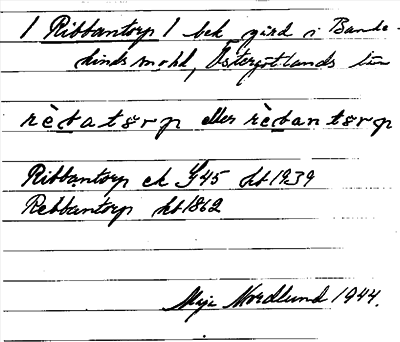 / Ribbantorp / bek gård i Banke-
kinds snskd, Östergötlands län
rèbatørp eller rèbantørp
Ribbantorp ek G45 hbt 1939
Rebbantorp hbt 1862
Maja Nordlund 1944.